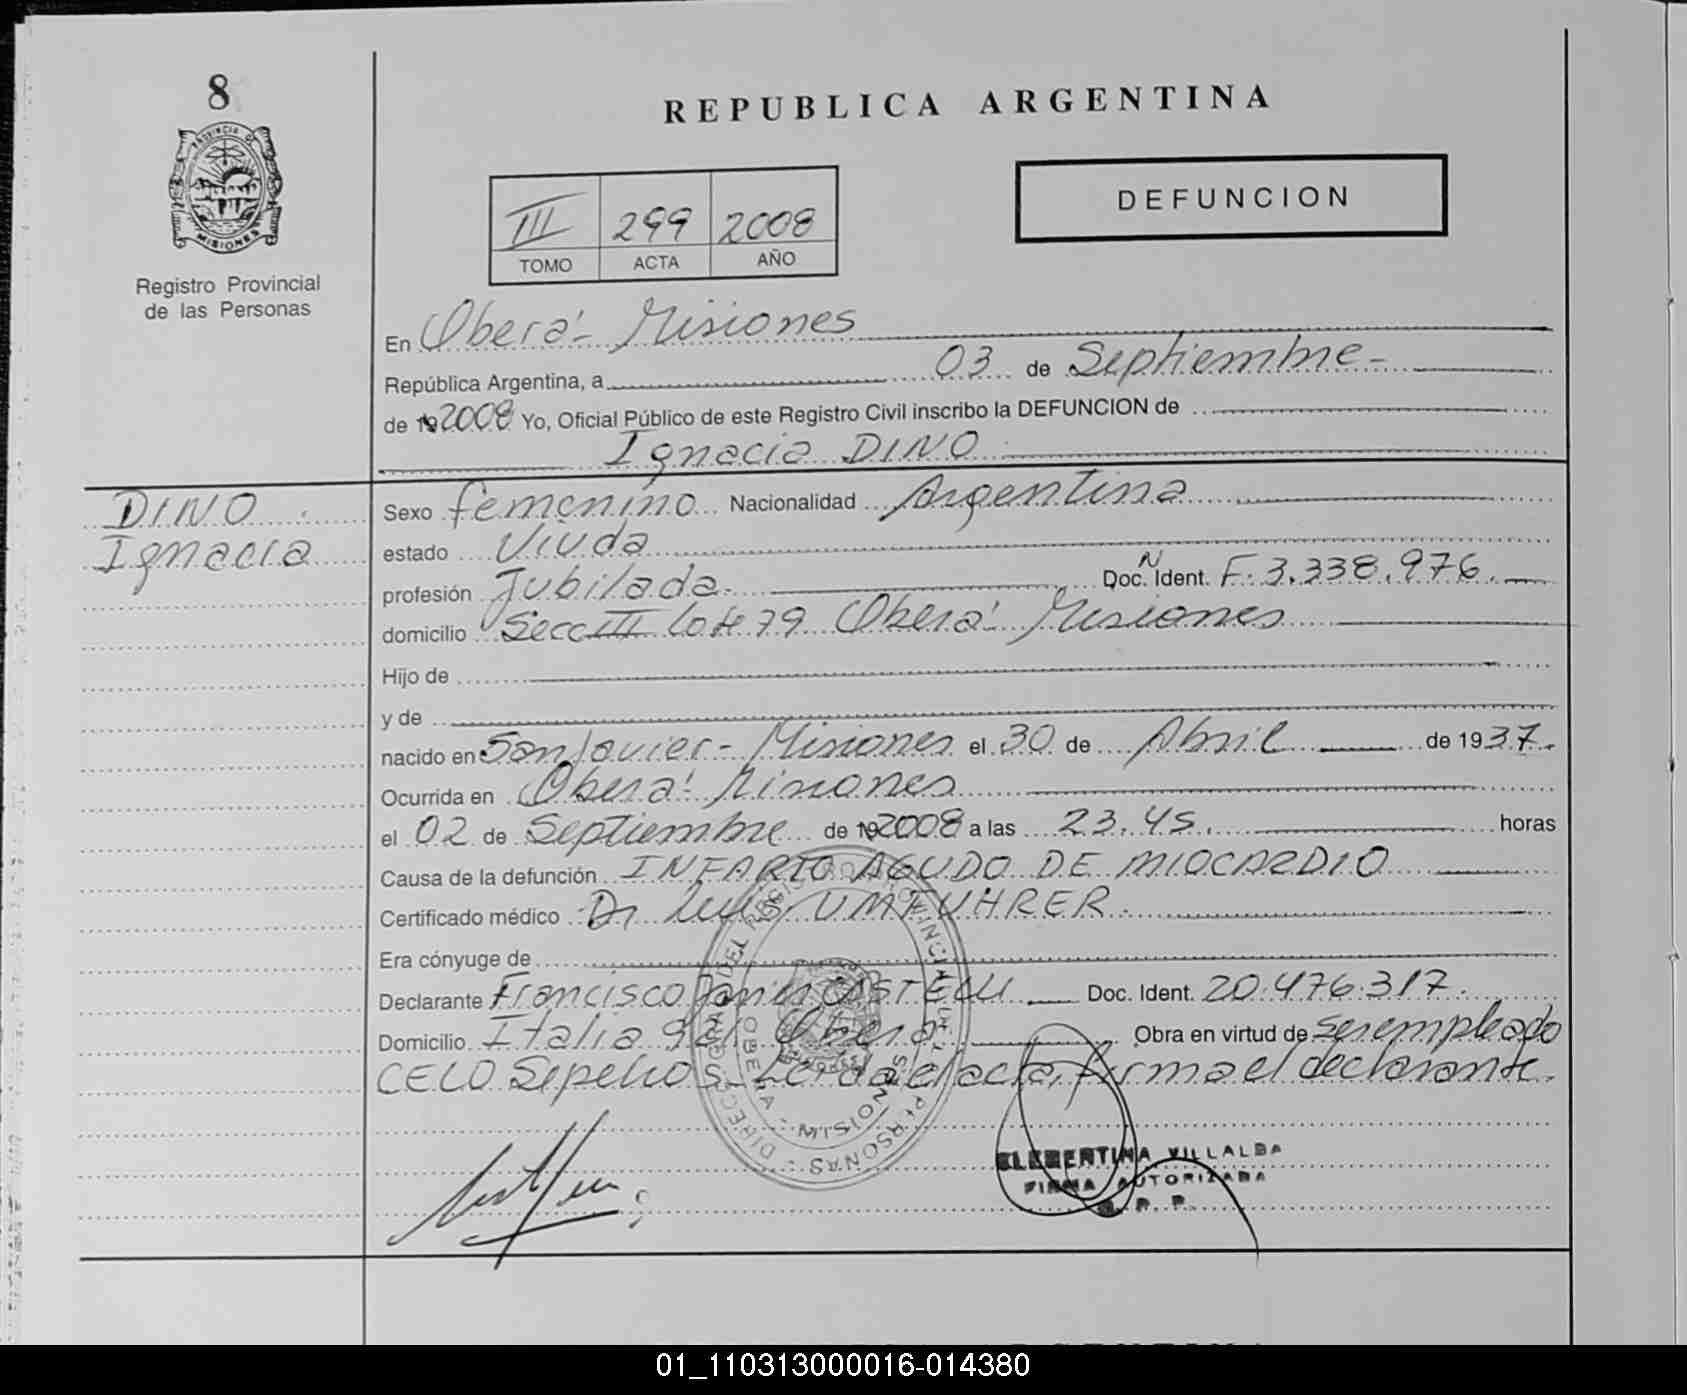 8
PROVINCIA DE
MISIONES
Registro Provincial
de las Personas
REPUBLICA ARGENTINA
III 299 2008
TOMO ACTA AÑO
DEFUNCION
En Oberá - Misiones
República Argentina, a 03 de Septiembre -
de 192008 Yo, Oficial Público de este Registro Civil inscribo la DEFUNCION de
Ignacia DINO
DINO
Ignacia
Sexo femenino Nacionalidad Argentina
estado Viuda
profesión Jubilada. Doc. N Ident. F. 3.338.976.
domicilio Secc III lote 79 Oberá - Misiones
Hijo de
y de
nacido en San Javier - Misiones el 30 de Abril de 1937.
Ocurrida en Oberá - Misiones
el 02 de Septiembre de 192008 a las 23.45. horas
Causa de la defunción INFARTO AGUDO DE MIOCARDIO
Certificado médico Dr Luis UMFUHRER.
Era cónyuge de
Declarante Francisco CASTELLI Doc. Ident. 20.476.317.
Domicilio Italia Oberá, Obra en virtud de ser empleado
CELO Sepelios. Leída el acta, firma el declarante.
DIRECCION DEL REGISTRO PROVINCIAL DE LAS PERSONAS
OBERA - MISIONES
CLEMENTINA VILLALBA
FIRMA AUTORIZADA
R. P. P.
01_110313000016-014380